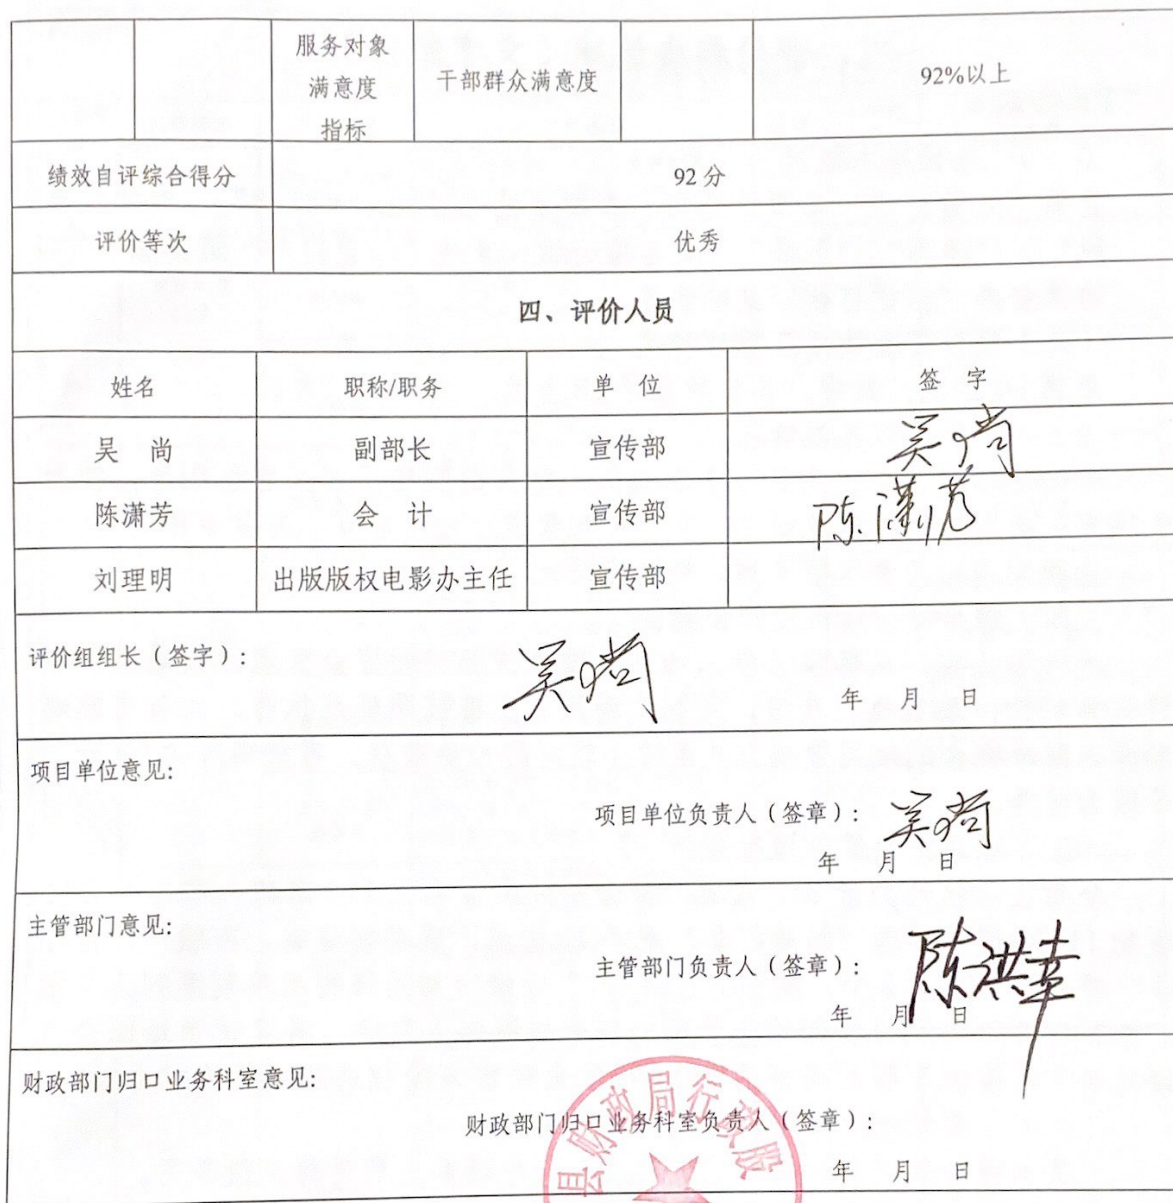 服务对象
满意度
指标
干部群众满意度
92%以上
绩效自评综合得分
92 分
评价等次
优秀
四、评价人员
姓名 职称/职务 单 位 签 字
吴 尚 副部长 宣传部 吴尚
陈潇芳 会 计 宣传部 陈潇芳
刘理明 出版版权电影办主任 宣传部
评价组组长（签字）: 吴尚
年 月 日
项目单位意见:
项目单位负责人（签章）: 吴尚
年 月 日
主管部门意见:
主管部门负责人（签章）: 陈洪幸
年 月 日
财政部门归口业务科室意见:
财政部门归口业务科室负责人（签章）:
年 月 日
县财政局行政股